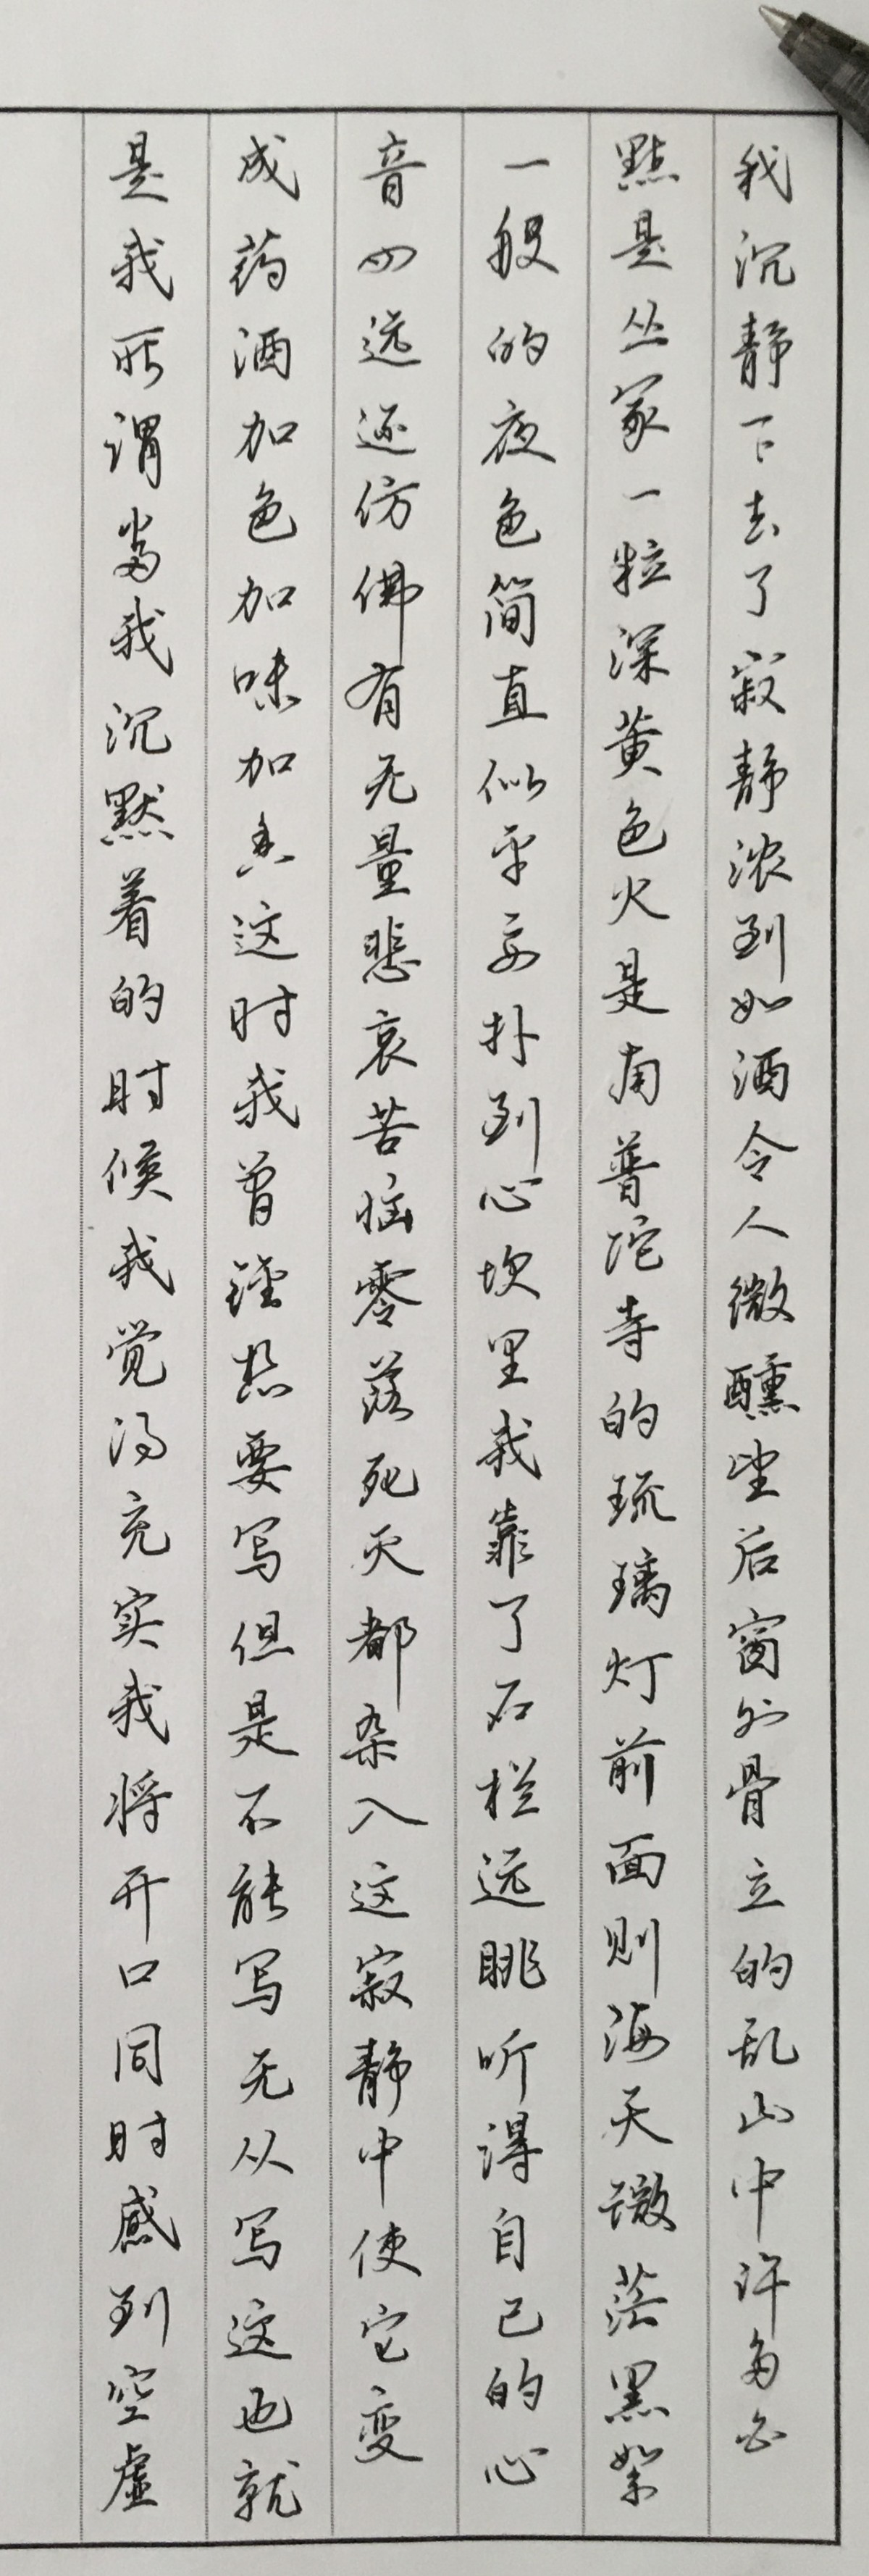 我沉静下去了寂静浓到如酒令人微醺望后窗外骨立的乱山中许多白
點是丛冢一粒深黄色火是南普坨寺的琉璃灯前面则海天微茫黑絮
一般的夜色简直似乎要扑到心坎里我靠了石栏远眺听得自己的心
音四远还仿佛有无量悲哀苦恼零落死灭都杂入这寂静中使它变
成药酒加色加味加香这时我曾经想要写但是不能写无从写这也就
是我所谓当我沉默着的时候我觉得充实我将开口同时感到空虚